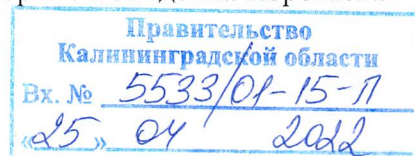 Правительство
Калининградской области
Вх. № 5533/01-15-П
«25» 04 2022